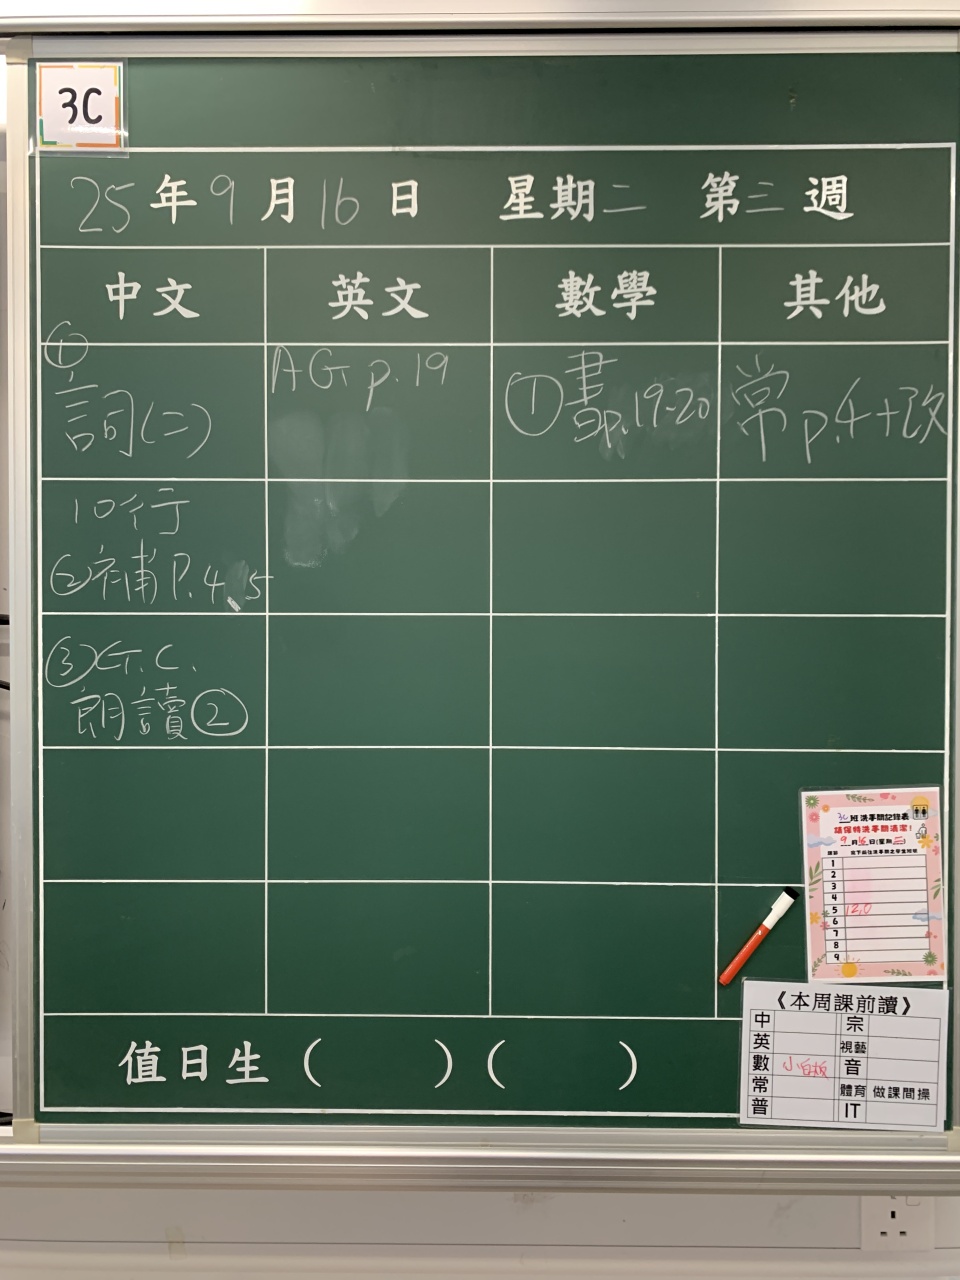 3C
25年9月16日 星期二 第三週
中文 英文 數學 其他
①
詞(二)
AG p.19
①書p.19-20
常p.4+改
10行
②補P.4,5
③G.C.
朗讀②
3C班洗手間記錄表
請保持洗手間清潔!
9月16日(星期三)
1
2
3
4
5 12,0
6
7
8
9
《本周課前讀》
中 宗
英 視藝
數 小白板 音
常 體育 做課間操
普 IT
值日生( )( )